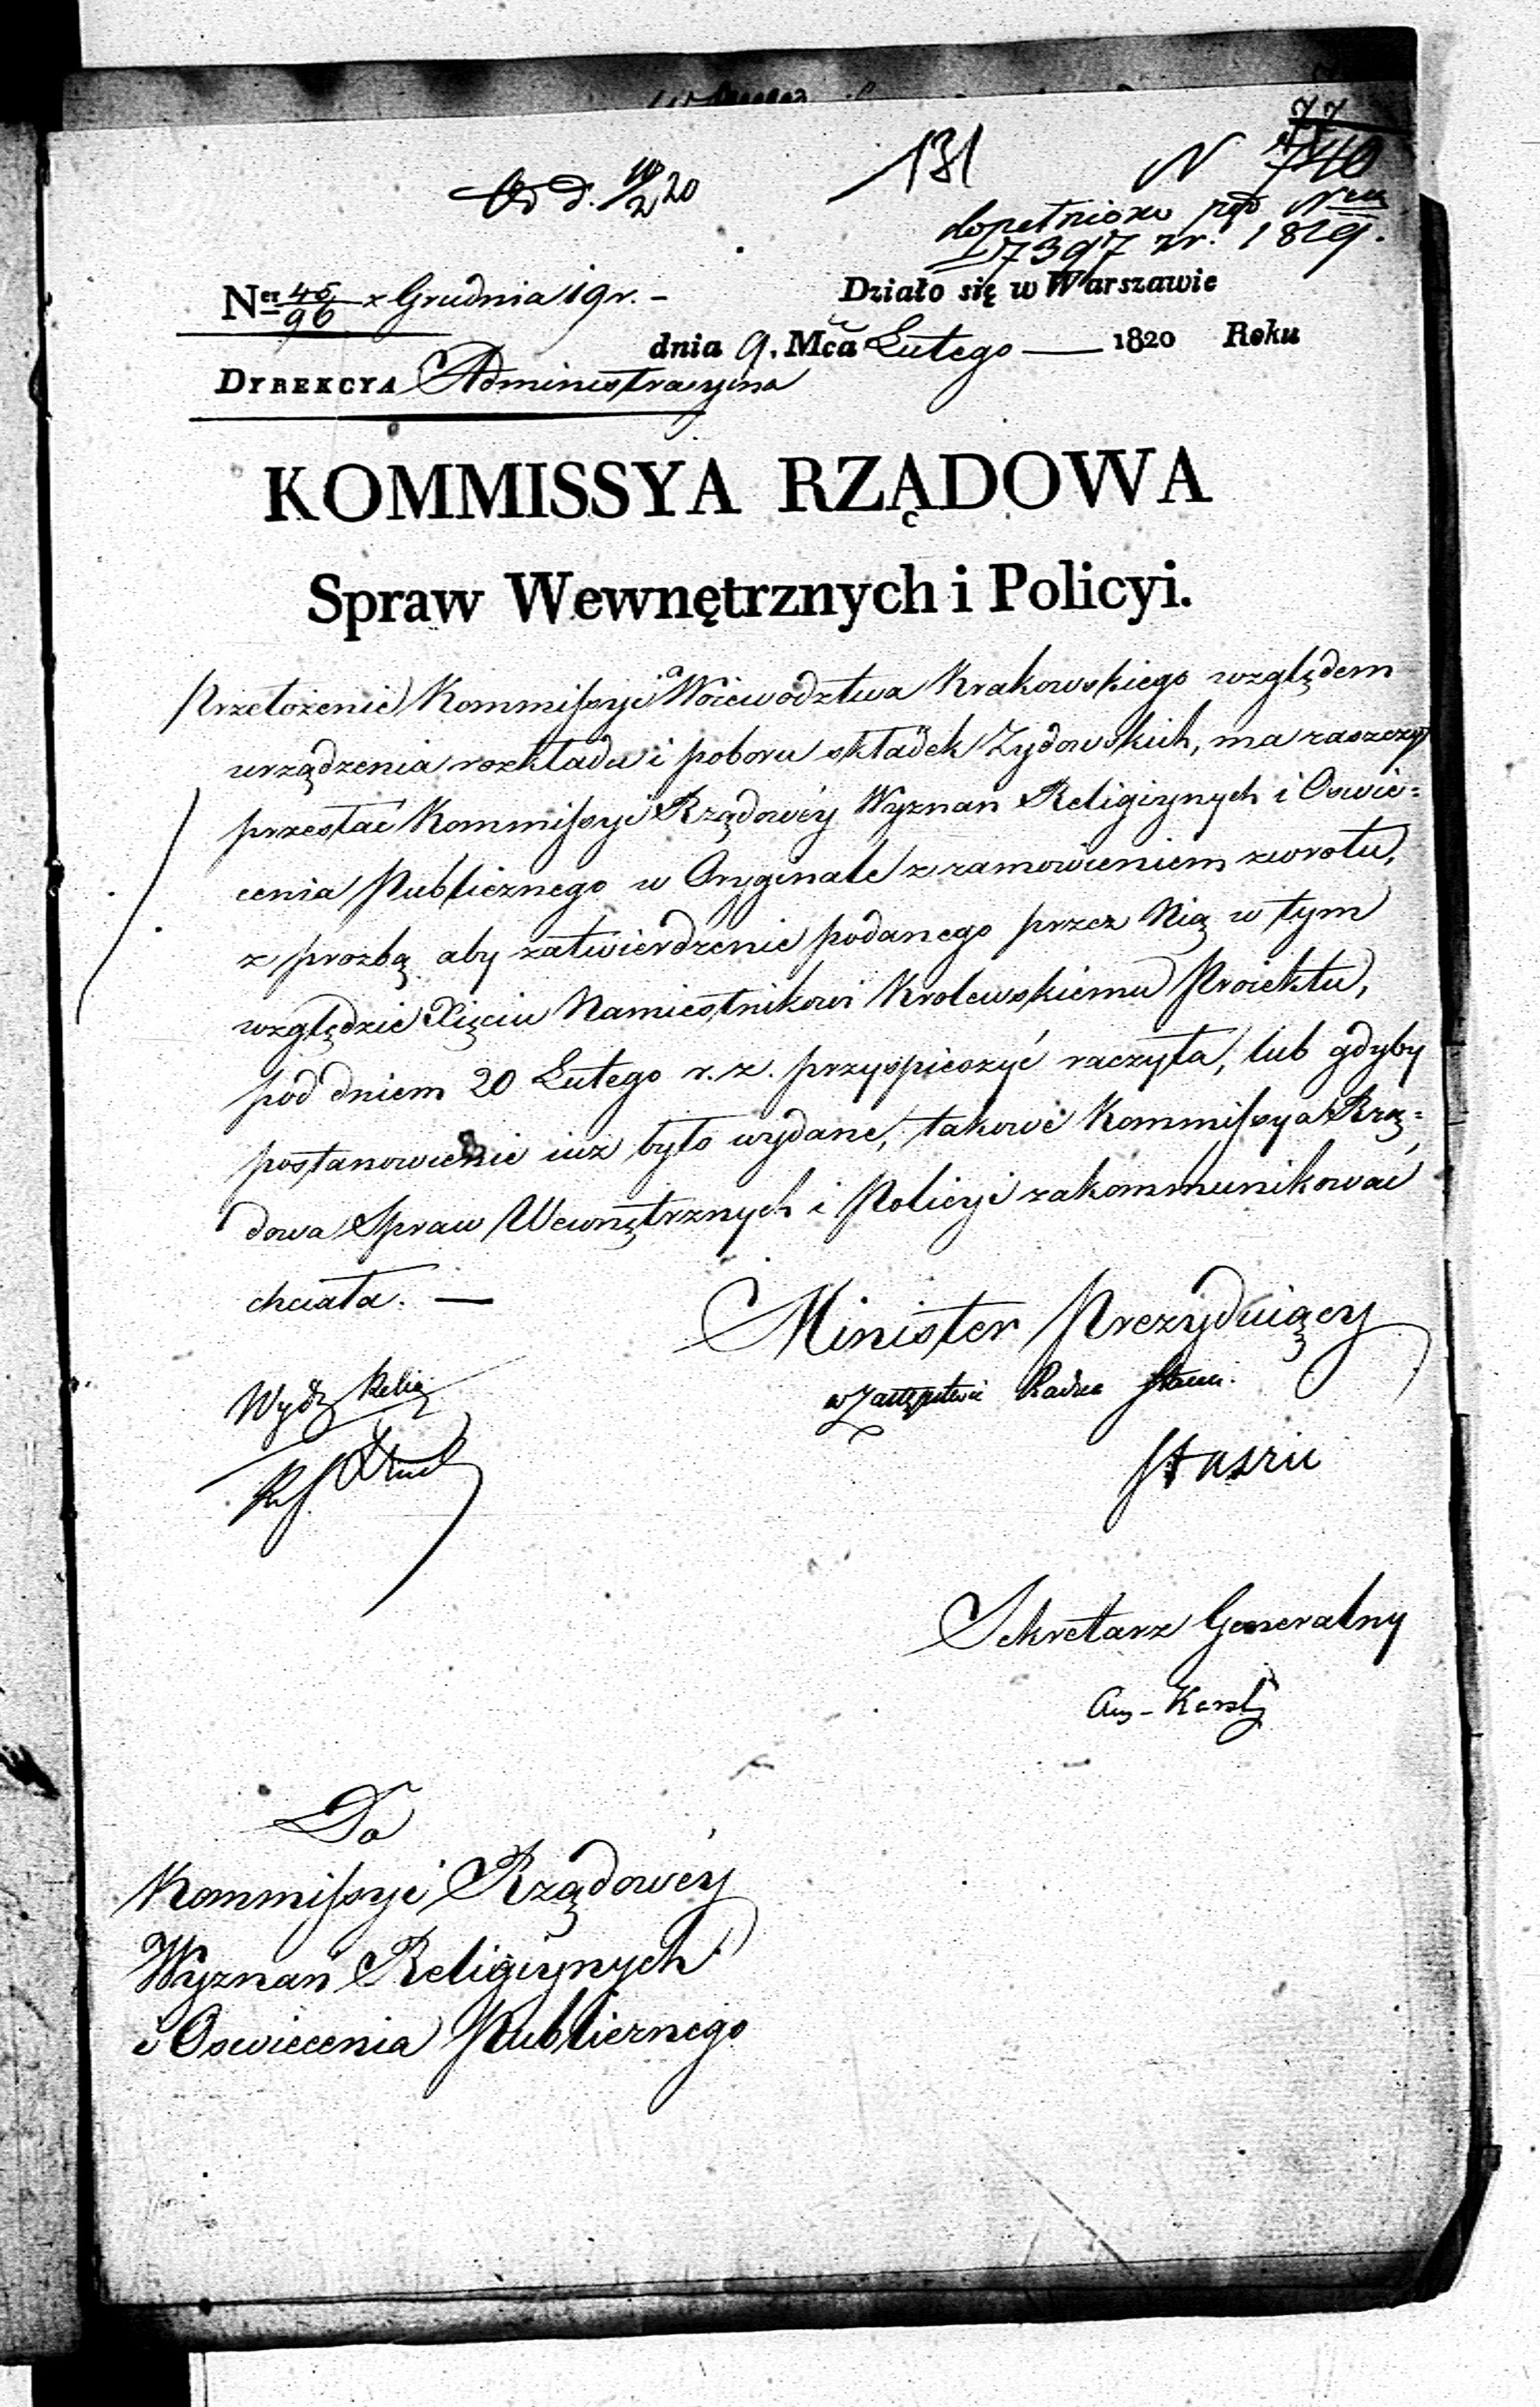 Od d. 10/2 20
131
N 740
77
dopełniono pod Nrem
17397 z r. 1819.
Ner 45/96 z Grudnia 19 r. –
Działo się w Warszawie
dnia 9. Mca Lutego — 1820 Roku
DYREKCYA Administracyina
KOMMISSYA RZĄDOWA
Spraw Wewnętrznych i Policyi.
Przełożenie Kommissyi Woiewodztwa Krakowskiego względem
urządzenia rozkładu i poboru składek Zydowskich, ma zaszczyt
przesłać Kommissyi Rządowéy Wyznań Religiynych i Oswie=
cenia Publicznego w Oryginale z zamowieniem zwrotu,
z prozbą aby zatwierdzenie podanego przez Nią w tym
względzie Xięciu Namiestnikowi Krolewskiemu Proiektu,
pod dniem 20 Lutego r. z. przyspieszyć raczyła, lub gdyby
postanowienie iuż było wydane, takowe Kommissya Rzą=
dowa Spraw Wewnętrznych i Policyi zakommunikować
chciała. —
Minister Prezyduiący
w Zastępstwie Radca Stanu
Staszic
Wydz. Relig.
Sekretarz Generalny
Do
Kommissyi Rządowéy
Wyznań Religiynych
i Oswiecenia Publicznego